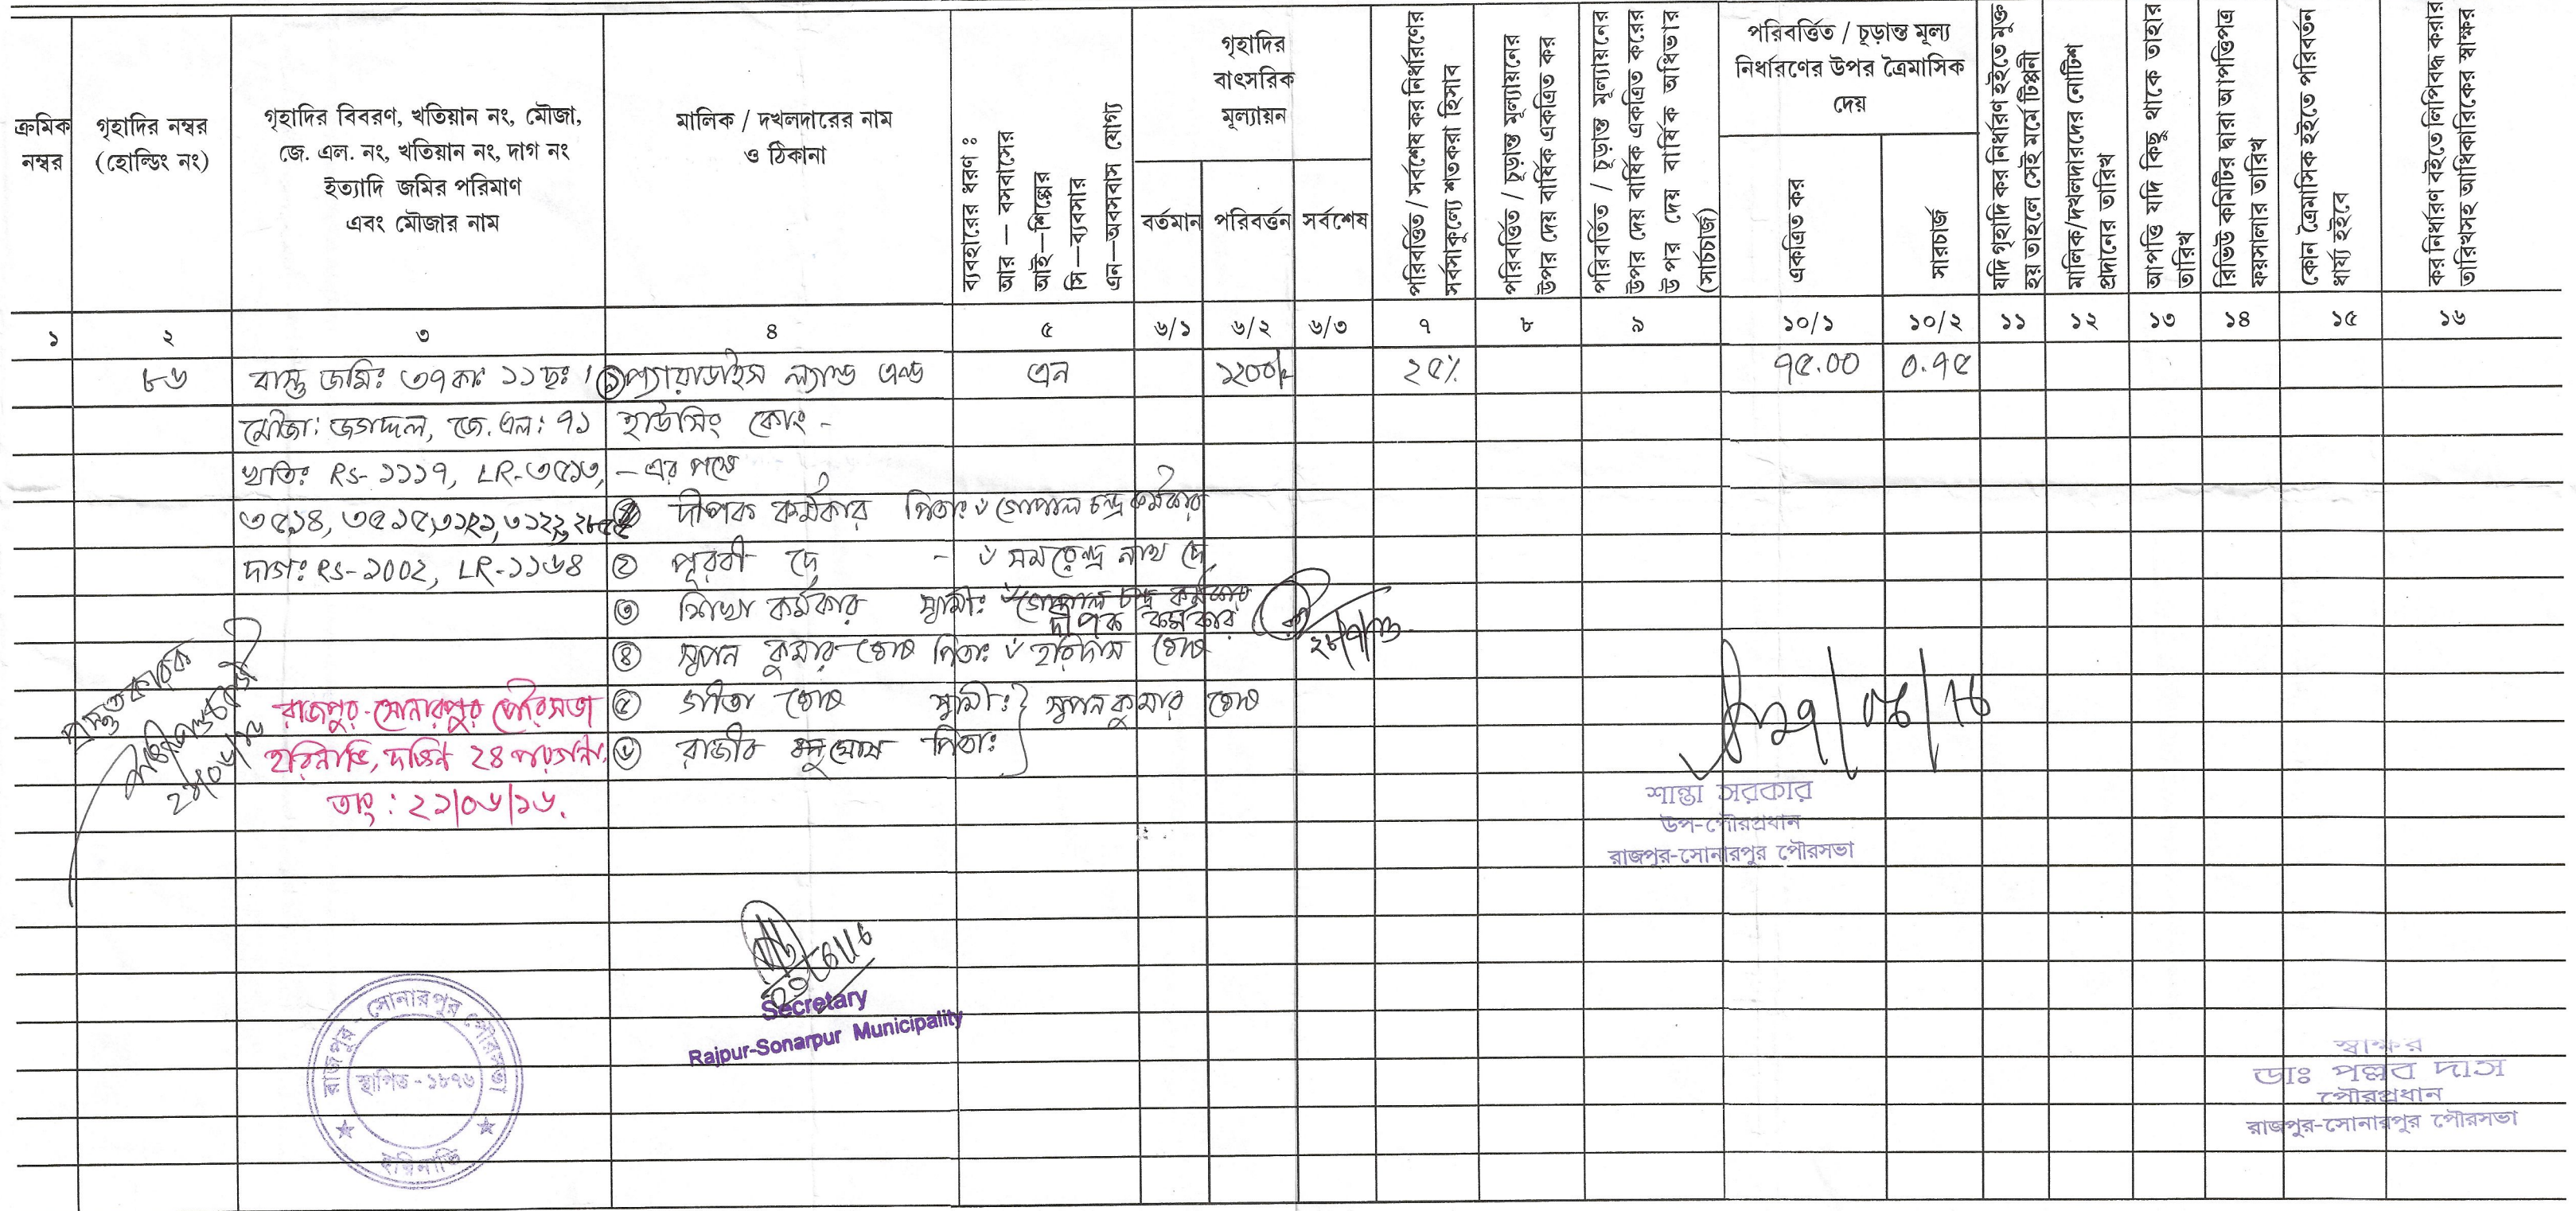 ক্রমিক
নম্বর
গৃহাদির নম্বর
(হোল্ডিং নং)
গৃহাদির বিবরণ, খতিয়ান নং, মৌজা,
জে. এল. নং, খতিয়ান নং, দাগ নং
ইত্যাদি জমির পরিমাণ
এবং মৌজার নাম
মালিক / দখলদারের নাম
ও ঠিকানা
ব্যবহারের ধরণ :
আর – বসবাসের
আই–শিল্পের
সি –ব্যবসার
এন–অবসবাস যোগ্য
গৃহাদির
বাৎসরিক
মূল্যায়ন
বর্তমান
পরিবর্ত্তন
সর্বশেষ
পরিবর্ত্তিত / সর্বশেষ কর নির্ধারণের
সর্বসাকুল্যে শতকরা হিসাব
পরিবর্ত্তিত / চূড়ান্ত মূল্যায়নের
উপর দেয় বার্ষিক একত্রিত কর
পরিবর্তিত / চূড়ান্ত মূল্যায়নের
উপর দেয় বার্ষিক একত্রিত করের
উপর দেয় বার্ষিক অধিভার
(সার্চচার্জ)
পরিবর্ত্তিত / চূড়ান্ত মূল্য
নির্ধারণের উপর ত্রৈমাসিক
দেয়
একত্রিত কর
সারচার্জ
যদি গৃহাদি কর নির্ধারণ হইতে মুক্ত
হয় তাহলে সেই মর্মে টিপ্পনী
মালিক/দখলদারদের নোটিশ
প্রদানের তারিখ
আপত্তি যদি কিছু থাকে তাহার
তারিখ
রিভিউ কমিটির দ্বারা আপত্তিপত্র
ফয়সালার তারিখ
কোন ত্রৈমাসিক হইতে পরিবর্তন
ধার্য্য হইবে
কর নির্ধারণ বইতে লিপিবদ্ধ করার
তারিখসহ আধিকারিকের স্বাক্ষর
১ ২ ৩ ৪ ৫ ৬/১ ৬/২ ৬/৩ ৭ ৮ ৯ ১০/১ ১০/২ ১১ ১২ ১৩ ১৪ ১৫ ১৬
৮৬ বাস্তু জমিঃ ৩৭কাঃ ১১ছঃ প্যারাডাইস ল্যান্ড এন্ড এন ১২০০/- ২৫% ৭৫.০০ ০.৭৫
মৌজা: জগদ্দল, জে.এল: ৭১ হাউসিং কোং -
খতিঃ RS-১১১৭, LR-৩৫১৩, - এর পক্ষে
৩৫১৪, ৩৫১৫, ৩১২১, ৩১২২, দীপক কর্মকার পিতাঃ ৺গোপাল চন্দ্র কর্মকার
দাগঃ RS-১০০২, LR-১১৬৪ ② পূরবী দে - ৺সমরেন্দ্র নাথ দে
③ শিখা কর্মকার স্বামীঃ গোপাল চন্দ্র কর্মকার
দীপক কর্মকার
④ স্বপন কুমার ঘোষ পিতাঃ ৺হরিদাস ঘোষ
⑤ গীতা ঘোষ স্বামীঃ স্বপন কুমার ঘোষ
⑥ রাজীব ঘোষ পিতাঃ
প্রস্তুতকারক
রাজপুর-সোনারপুর পৌরসভা
হরিনাভি, দক্ষিণ ২৪ পরগনা,
তাং: ২১/০৬/১৬.
শান্তা সরকার
উপ-পৌরপ্রধান
রাজপুর-সোনারপুর পৌরসভা
Secretary
Rajpur-Sonarpur Municipality
রাজপুর - সোনারপুর পৌরসভা
স্থাপিত - ১৮৭৬
হরিনাভি
স্বাক্ষর
ডাঃ পল্লব দাস
পৌরপ্রধান
রাজপুর-সোনারপুর পৌরসভা